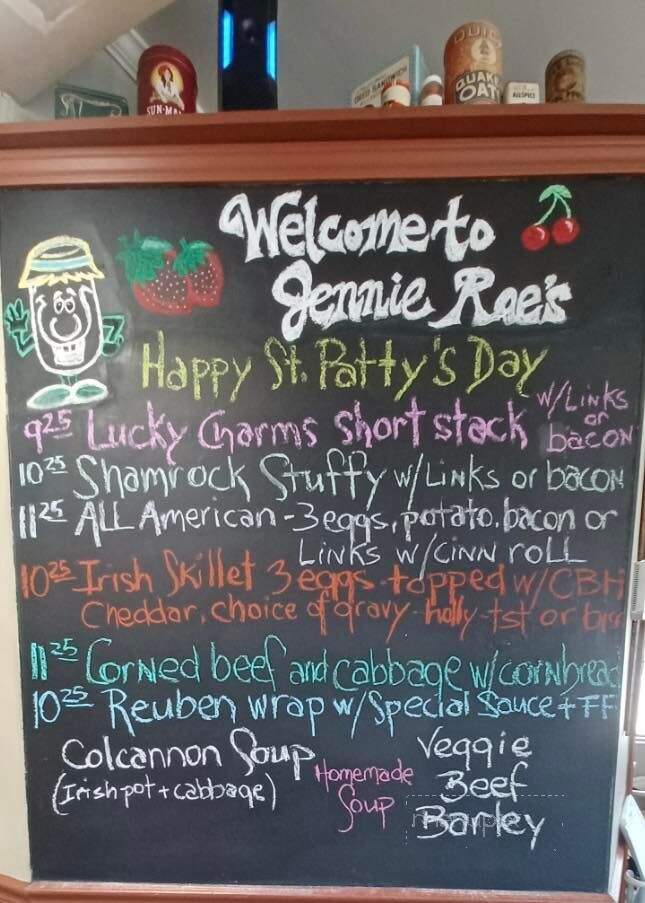 SUN-MA
QUAKE
OAT
ALLSPICE
Welcome to
Jennie Rae's
Happy St. Patty's Day
9 25 Lucky Charms short stack w/Links or bacon
10 25 Shamrock Stuffy w/Links or bacon
11 25 ALL American - 3 eggs, potato, bacon or
Links w/cinn roll
10 25 Irish Skillet 3 eggs topped w/CBH
Cheddar, choice of gravy holly tst or bis
11 25 Corned beef and cabbage w/cornbread
10 25 Reuben wrap w/Special Sauce + FF
Colcannon Soup
(Irish pot + cabbage)
Homemade
Soup
Veggie
Beef
Barley